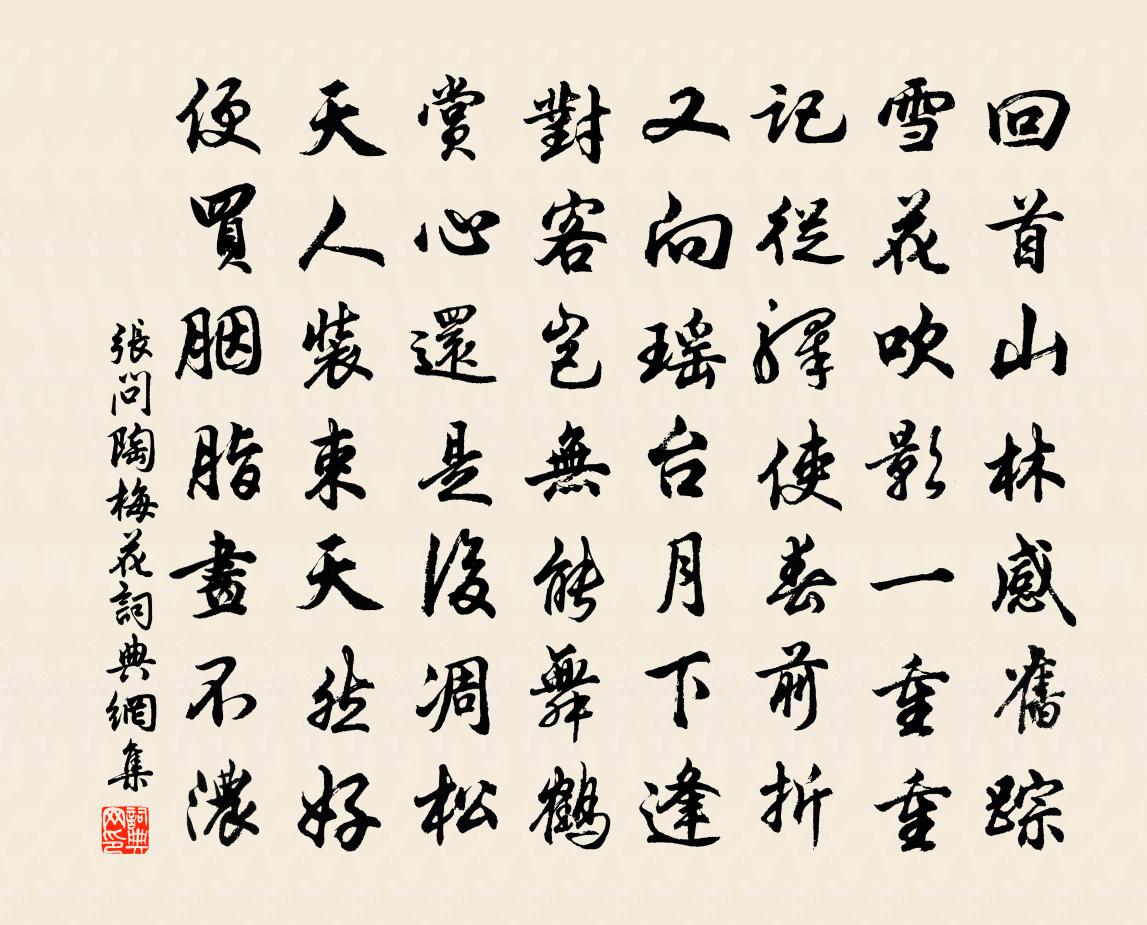 回首山林感舊踪
雪花吹影一重重
記從驛使春前折
又向瑶台月下逢
對客豈無能舞鶴
賞心還是後凋松
天人裝束天然好
便買胭脂畫不濃
張問陶梅花詞典網集
詞典網印